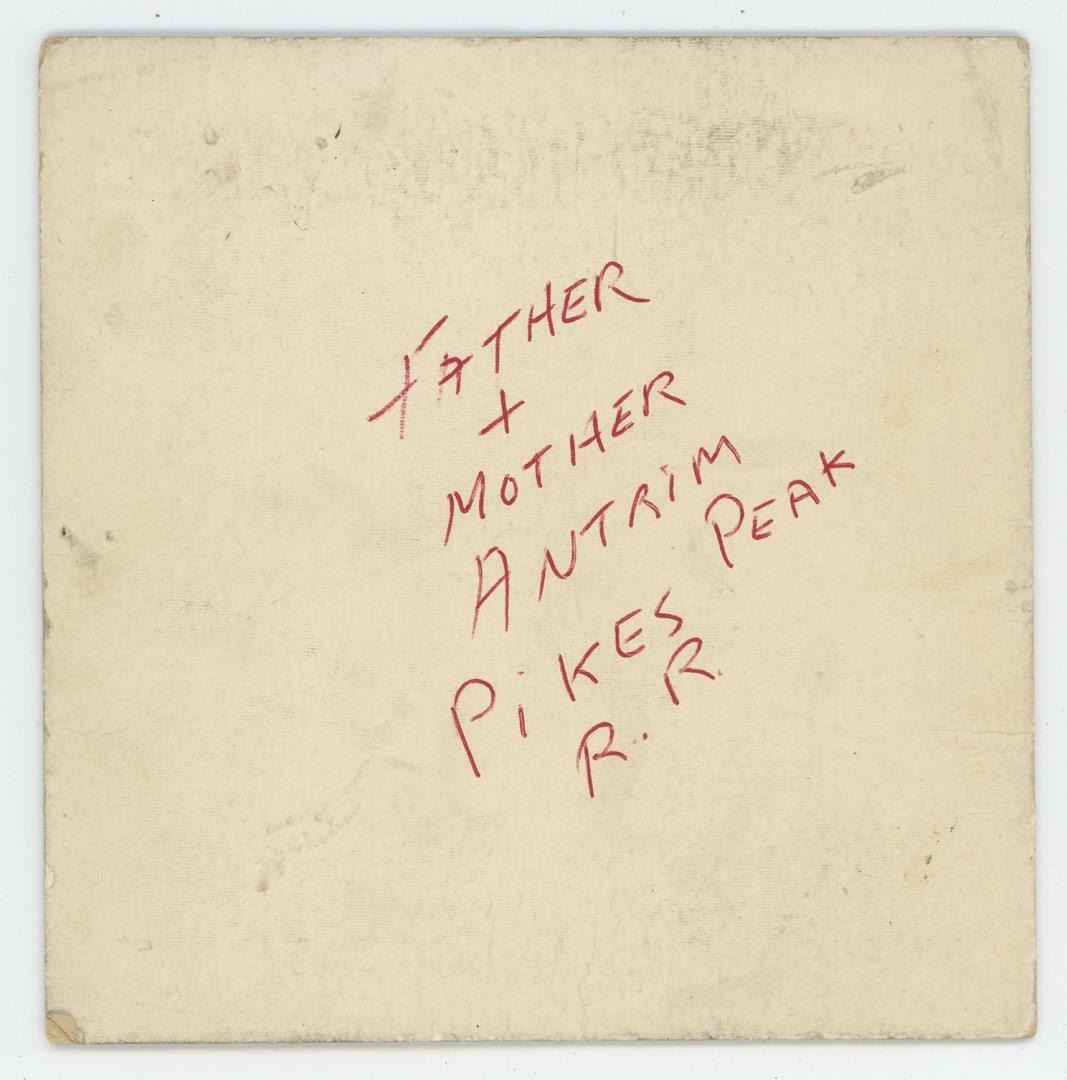 FATHER
+
MOTHER
ANTRIM
PIKES PEAK
R. R.